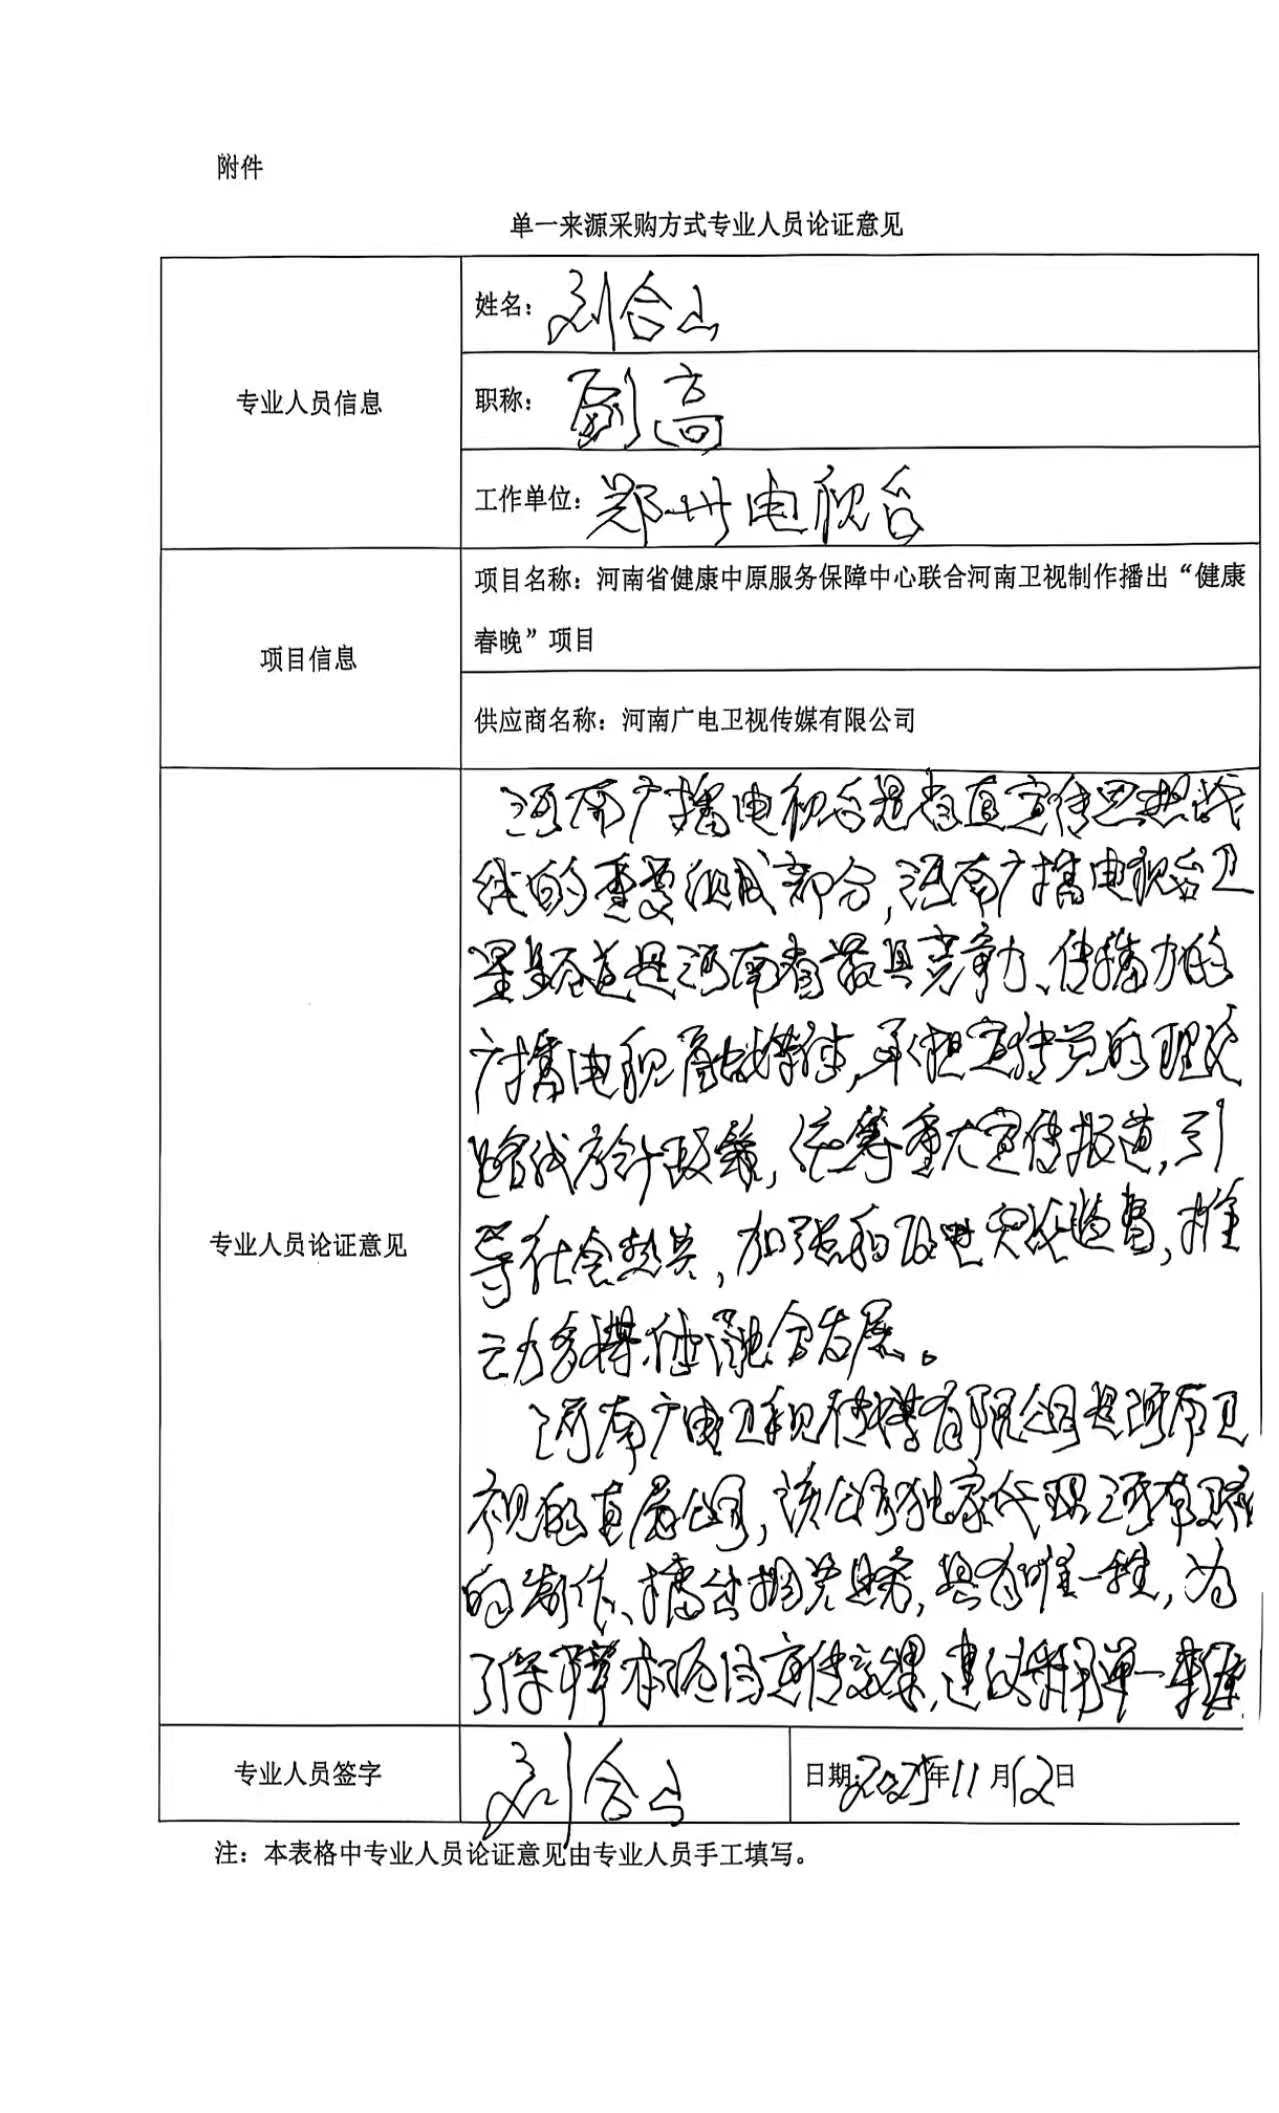 附件
单一来源采购方式专业人员论证意见
专业人员信息
姓名：刘合山
职称：副高
工作单位：郑州电视台
项目信息
项目名称：河南省健康中原服务保障中心联合河南卫视制作播出“健康
春晚”项目
供应商名称：河南广电卫视传媒有限公司
专业人员论证意见
河南广播电视台是省直宣传思想战
线的重要组成部分，河南广播电视台卫
星频道是河南省最具竞争力、传播力的
广播电视融媒体，承担宣传党的理论
路线方针政策，统筹重大宣传报道，引
导社会热点，加强和改进舆论监督，推
动多媒体融合发展。
河南广电卫视传媒有限公司是河南卫
视的直属公司，该公司独家代理河南卫视
的制作、播出相关业务，具有唯一性，为
了保障本项目宣传效果，建议采用单一来源
专业人员签字
刘合山
日期：2025年11月12日
注：本表格中专业人员论证意见由专业人员手工填写。